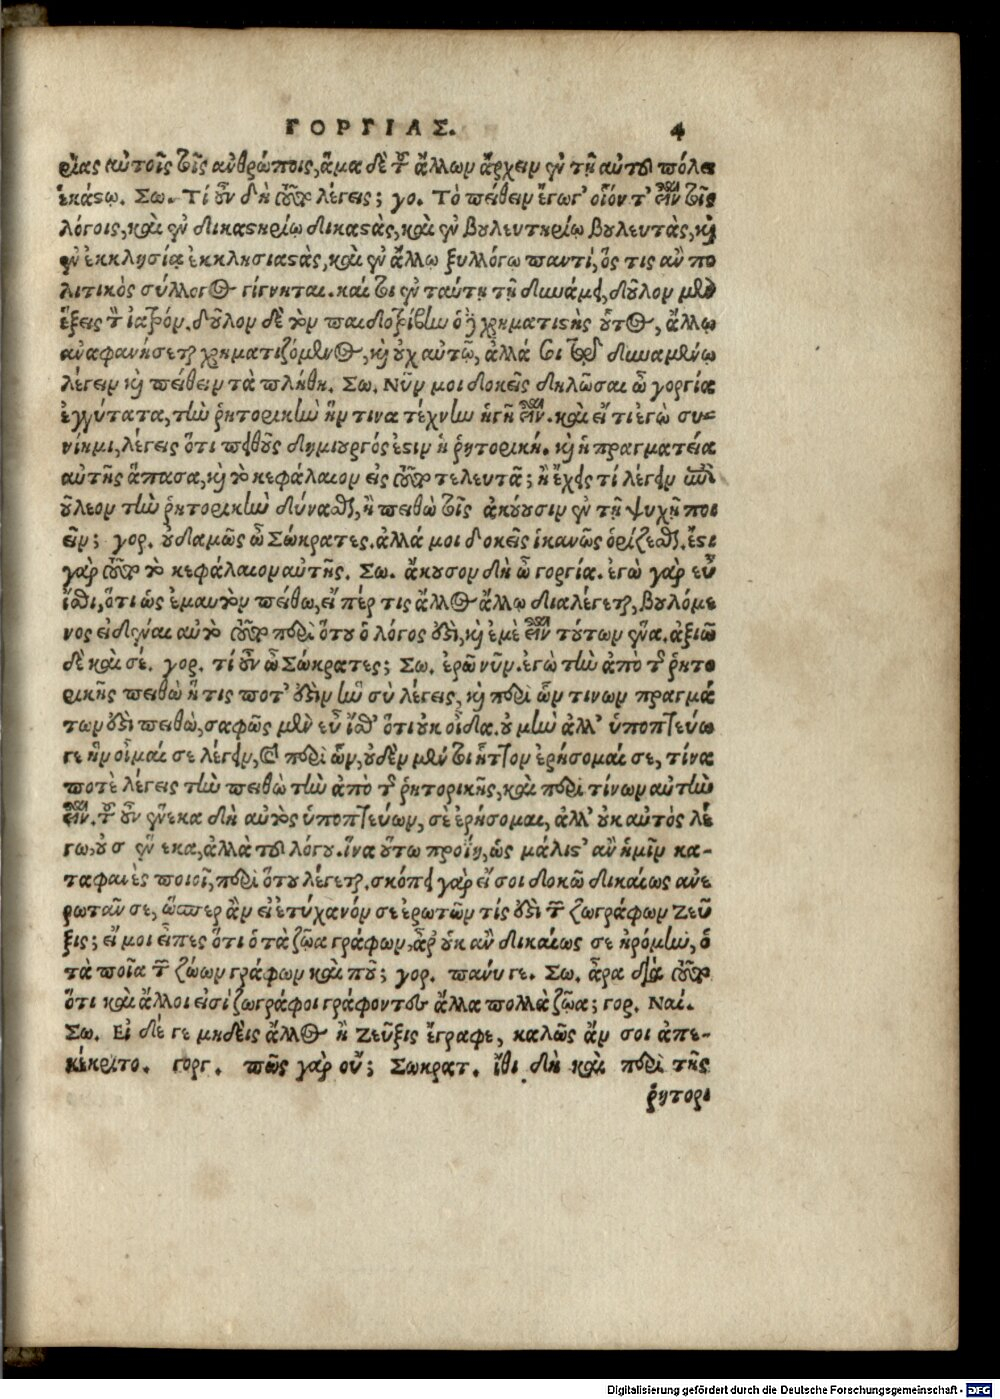 ΓΟΡΓΙΑΣ. 4
ρίας αὐτοῖς τοῖς ἀνθρώποις, ἅμα δὲ τοῦ ἄλλων ἄρχειν ἐν τῇ αὐτοῦ πόλει
ἑκάστῳ. Σω. Τί οὖν δὴ τοῦτο λέγεις; γο. Τὸ πείθειν ἔγωγ' οἷόντ' εἶναι τοῖς
λόγοις, καὶ ἐν δικαστηρίῳ δικαστὰς, καὶ ἐν βουλευτηρίῳ βουλευτὰς, καὶ
ἐν ἐκκλησίᾳ ἐκκλησιαστὰς, καὶ ἐν ἄλλῳ ξυλλόγῳ παντί, ὅς τις ἂν πο
λιτικὸς σύλλογος γίγνηται. καί τοι ἐν ταύτῃ τῇ δυνάμει, δοῦλον μὲν
ἕξεις τὸν ἰατρόν. δοῦλον δὲ τὸν παιδοτρίβην ὁ δὲ χρηματιστὴς οὗτος, ἄλλῳ
ἀναφανήσεται χρηματιζόμενος, καὶ οὐχ αὑτῷ, ἀλλά σοι τῷ δυναμένῳ
λέγειν καὶ πείθειν τὰ πλήθη. Σω. Νῦν μοι δοκεῖς δηλῶσαι ὦ γοργία
ἐγγύτατα, τὴν ῥητορικὴν ἥν τινα τέχνην ἡγῇ εἶναι. καὶ εἴ τι ἐγὼ συ-
νίημι, λέγεις ὅτι πειθοῦς δημιουργός ἐστιν ἡ ῥητορική. καὶ ἡ πραγματεία
αὐτῆς ἅπασα, καὶ τὸ κεφάλαιον εἰς τοῦτο τελευτᾷ; ἢ ἔχεις τί λέγειν ἐπὶ
πλέον τὴν ῥητορικὴν δύνασθαι, ἢ πειθὼ τοῖς ἀκούουσιν ἐν τῇ ψυχῇ ποι
εῖν; γορ. οὐδαμῶς ὦ Σώκρατες. ἀλλά μοι δοκεῖς ἱκανῶς ὁρίζεσθαι. ἔστι
γὰρ τοῦτο τὸ κεφάλαιον αὐτῆς. Σω. ἄκουσον δὴ ὦ γοργία. ἐγὼ γὰρ εὖ
ἴσθι, ὅτι ὡς ἐμαυτὸν πείθω, εἴ πέρ τις ἄλλος ἄλλῳ διαλέγεται, βουλόμε
νος εἰδέναι αὐτὸ τοῦτο περὶ ὅτου ὁ λόγος ἐστὶ, καὶ ἐμὲ εἶναι τούτων ἕνα. ἀξιῶ
δὲ καὶ σέ. γορ. τί οὖν ὦ Σώκρατες; Σω. ἐρῶ νῦν. ἐγὼ τὴν ἀπὸ τῆς ῥητο
ρικῆς πειθὼ ἥ τις ποτ' ἐστὶν ἣν σὺ λέγεις, καὶ περὶ ὧν τινων πραγμά
των ἐστὶ πειθὼ, σαφῶς μὲν εὖ ἴσθ' ὅτι οὐκ οἶδα. οὐ μὴν ἀλλ' ὑποπτεύω
γε ἣν οἶμαί σε λέγειν, καὶ περὶ ὧν, οὐδὲν μέν τοι ἧττον ἐρήσομαί σε, τίνα
ποτὲ λέγεις τὴν πειθὼ τὴν ἀπὸ τῆς ῥητορικῆς, καὶ περὶ τίνων αὐτὴν
εἶναι. τοῦ οὖν ἕνεκα δὴ αὐτὸς ὑποπτεύων, σὲ ἐρήσομαι, ἀλλ' οὐκ αὐτὸς λέ
γω, οὐ σ ἕν εκα, ἀλλὰ τοῦ λόγου. ἵνα οὕτω προΐῃ, ὡς μάλιστ' ἂν ἡμῖν κα-
ταφανὲς ποιοῖ, περὶ ὅτου λέγεται. σκόπει γὰρ εἴ σοι δοκῶ δικαίως ἀνε
ρωτᾶν σε, ὥσπερ ἂν εἰ ἐτύχανόν σε ἐρωτῶν τίς ἐστὶ τῶν ζωγράφων Ζεῦ
ξις; εἴ μοι εἶπες ὅτι ὁ τὰ ζῷα γράφων, ἆρ' οὐκ ἂν δικαίως σε ἠρόμην, ὁ
τὰ ποῖα τῶν ζώων γράφων καὶ ποῦ; γορ. πάνυ γε. Σω. ἆρα διὰ τοῦτο
ὅτι καὶ ἄλλοι εἰσὶ ζωγράφοι γράφοντες ἄλλα πολλὰ ζῷα; γορ. Ναί.
Σω. Εἰ δέ γε μηδεὶς ἄλλος ἢ Ζεῦξις ἔγραφε, καλῶς ἄν σοι ἀπε-
κέκριτο. γοργ. πῶς γὰρ οὔ; Σωκρατ. ἴθι δὴ καὶ περὶ τῆς
ῥητορι
Digitalisierung gefördert durch die Deutsche Forschungsgemeinschaft - DFG